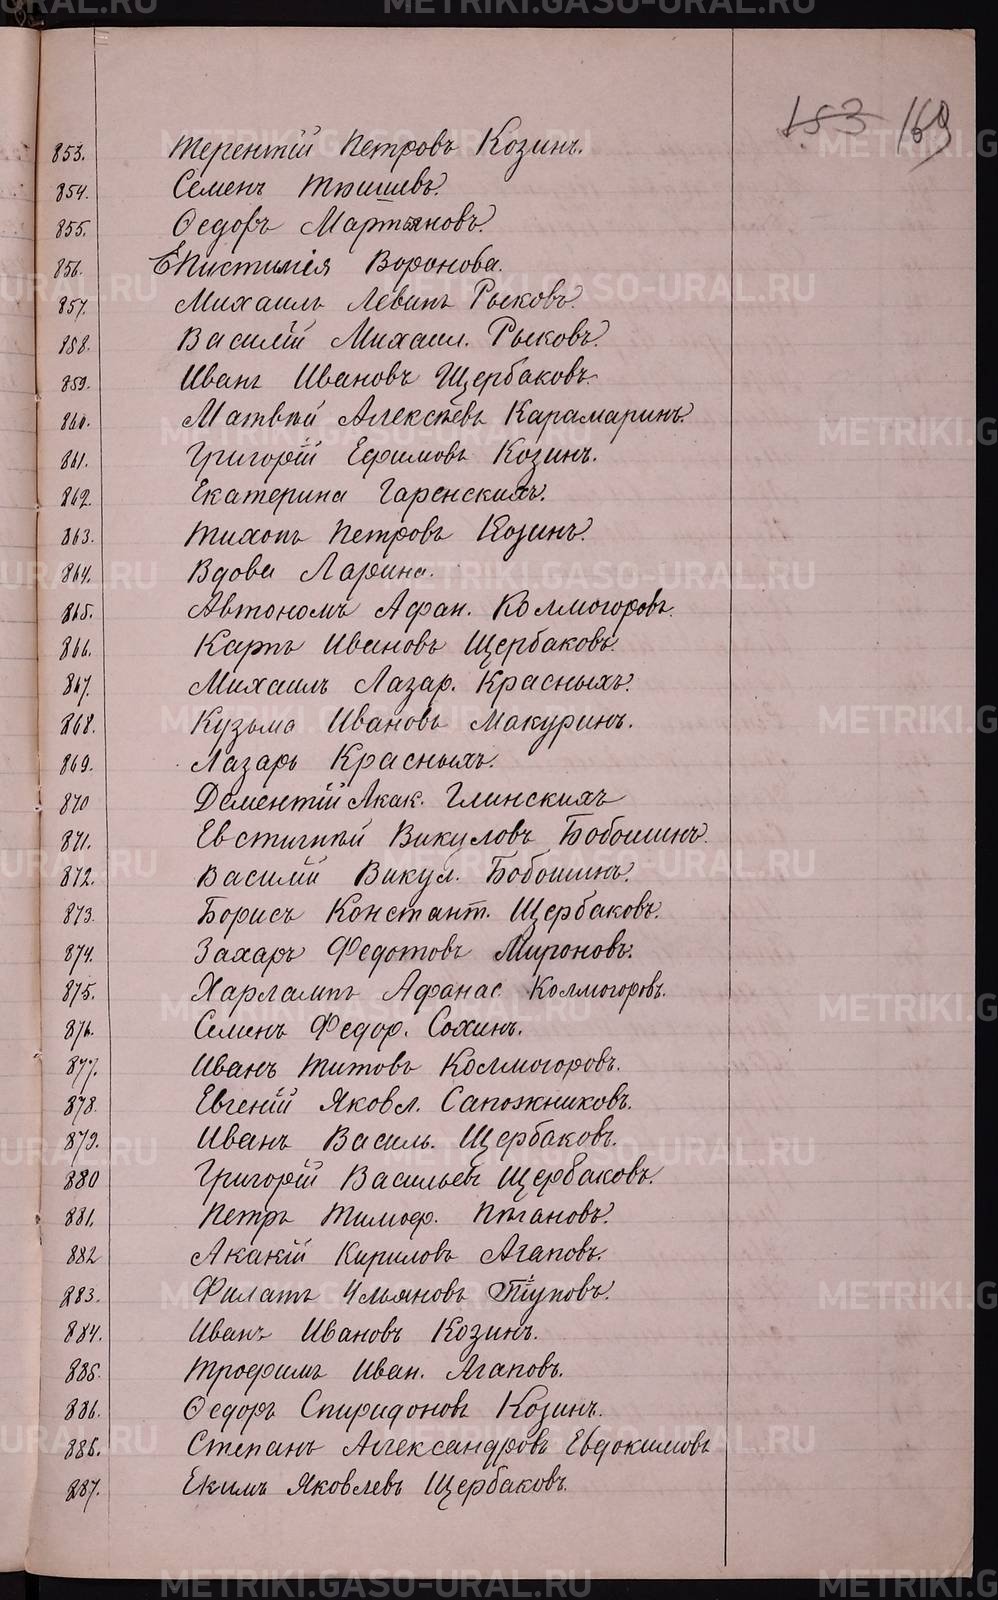 153 169
853. Терентій Петровъ Козинъ.
854. Семенъ Тюшевъ.
855. Ѳедоръ Мартьяновъ.
856. Епистимія Воронова.
857. Михаилъ Левинъ Рысковъ.
858. Василій Михаил. Рысковъ.
859. Иванъ Ивановъ Щербаковъ.
860. Матвѣй Алексѣевъ Карамаринъ.
861. Григорій Ефимовъ Козинъ.
862. Екатерина Гаренскихъ.
863. Тихонъ Петровъ Козинъ.
864. Вдова Ларина.
865. Автономъ Афан. Колмогоровъ.
866. Карпъ Ивановъ Щербаковъ.
867. Михаилъ Лазар. Красныхъ.
868. Кузьма Ивановъ Макуринъ.
869. Лазарь Красныхъ.
870 Дементій Акак. Глинскихъ
871. Евстигнѣй Викуловъ Бобошинъ.
872. Василій Викул. Бобошинъ.
873. Борисъ Констант. Щербаковъ.
874. Захаръ Федотовъ Мироновъ.
875. Харлампъ Афанас. Колмогоровъ.
876. Семенъ Федор. Сохинъ.
877. Иванъ Титовъ Колмогоровъ.
878. Евгеній Яковл. Сапожниковъ.
879. Иванъ Василь. Щербаковъ.
880 Григорій Васильевъ Щербаковъ.
881. Петръ Тимоф. Пѣгановъ.
882 Акакій Кириловъ Агаповъ.
883. Филатъ Ульяновъ
884. Иванъ Ивановъ Козинъ.
885. Трофимъ Иван. Агаповъ.
886. Ѳедоръ Спиридоновъ Козинъ.
886. Степанъ Александровъ Евдокимовъ
887. Екимъ Яковлевъ Щербаковъ.
METRIKI.GASO-URAL.RU